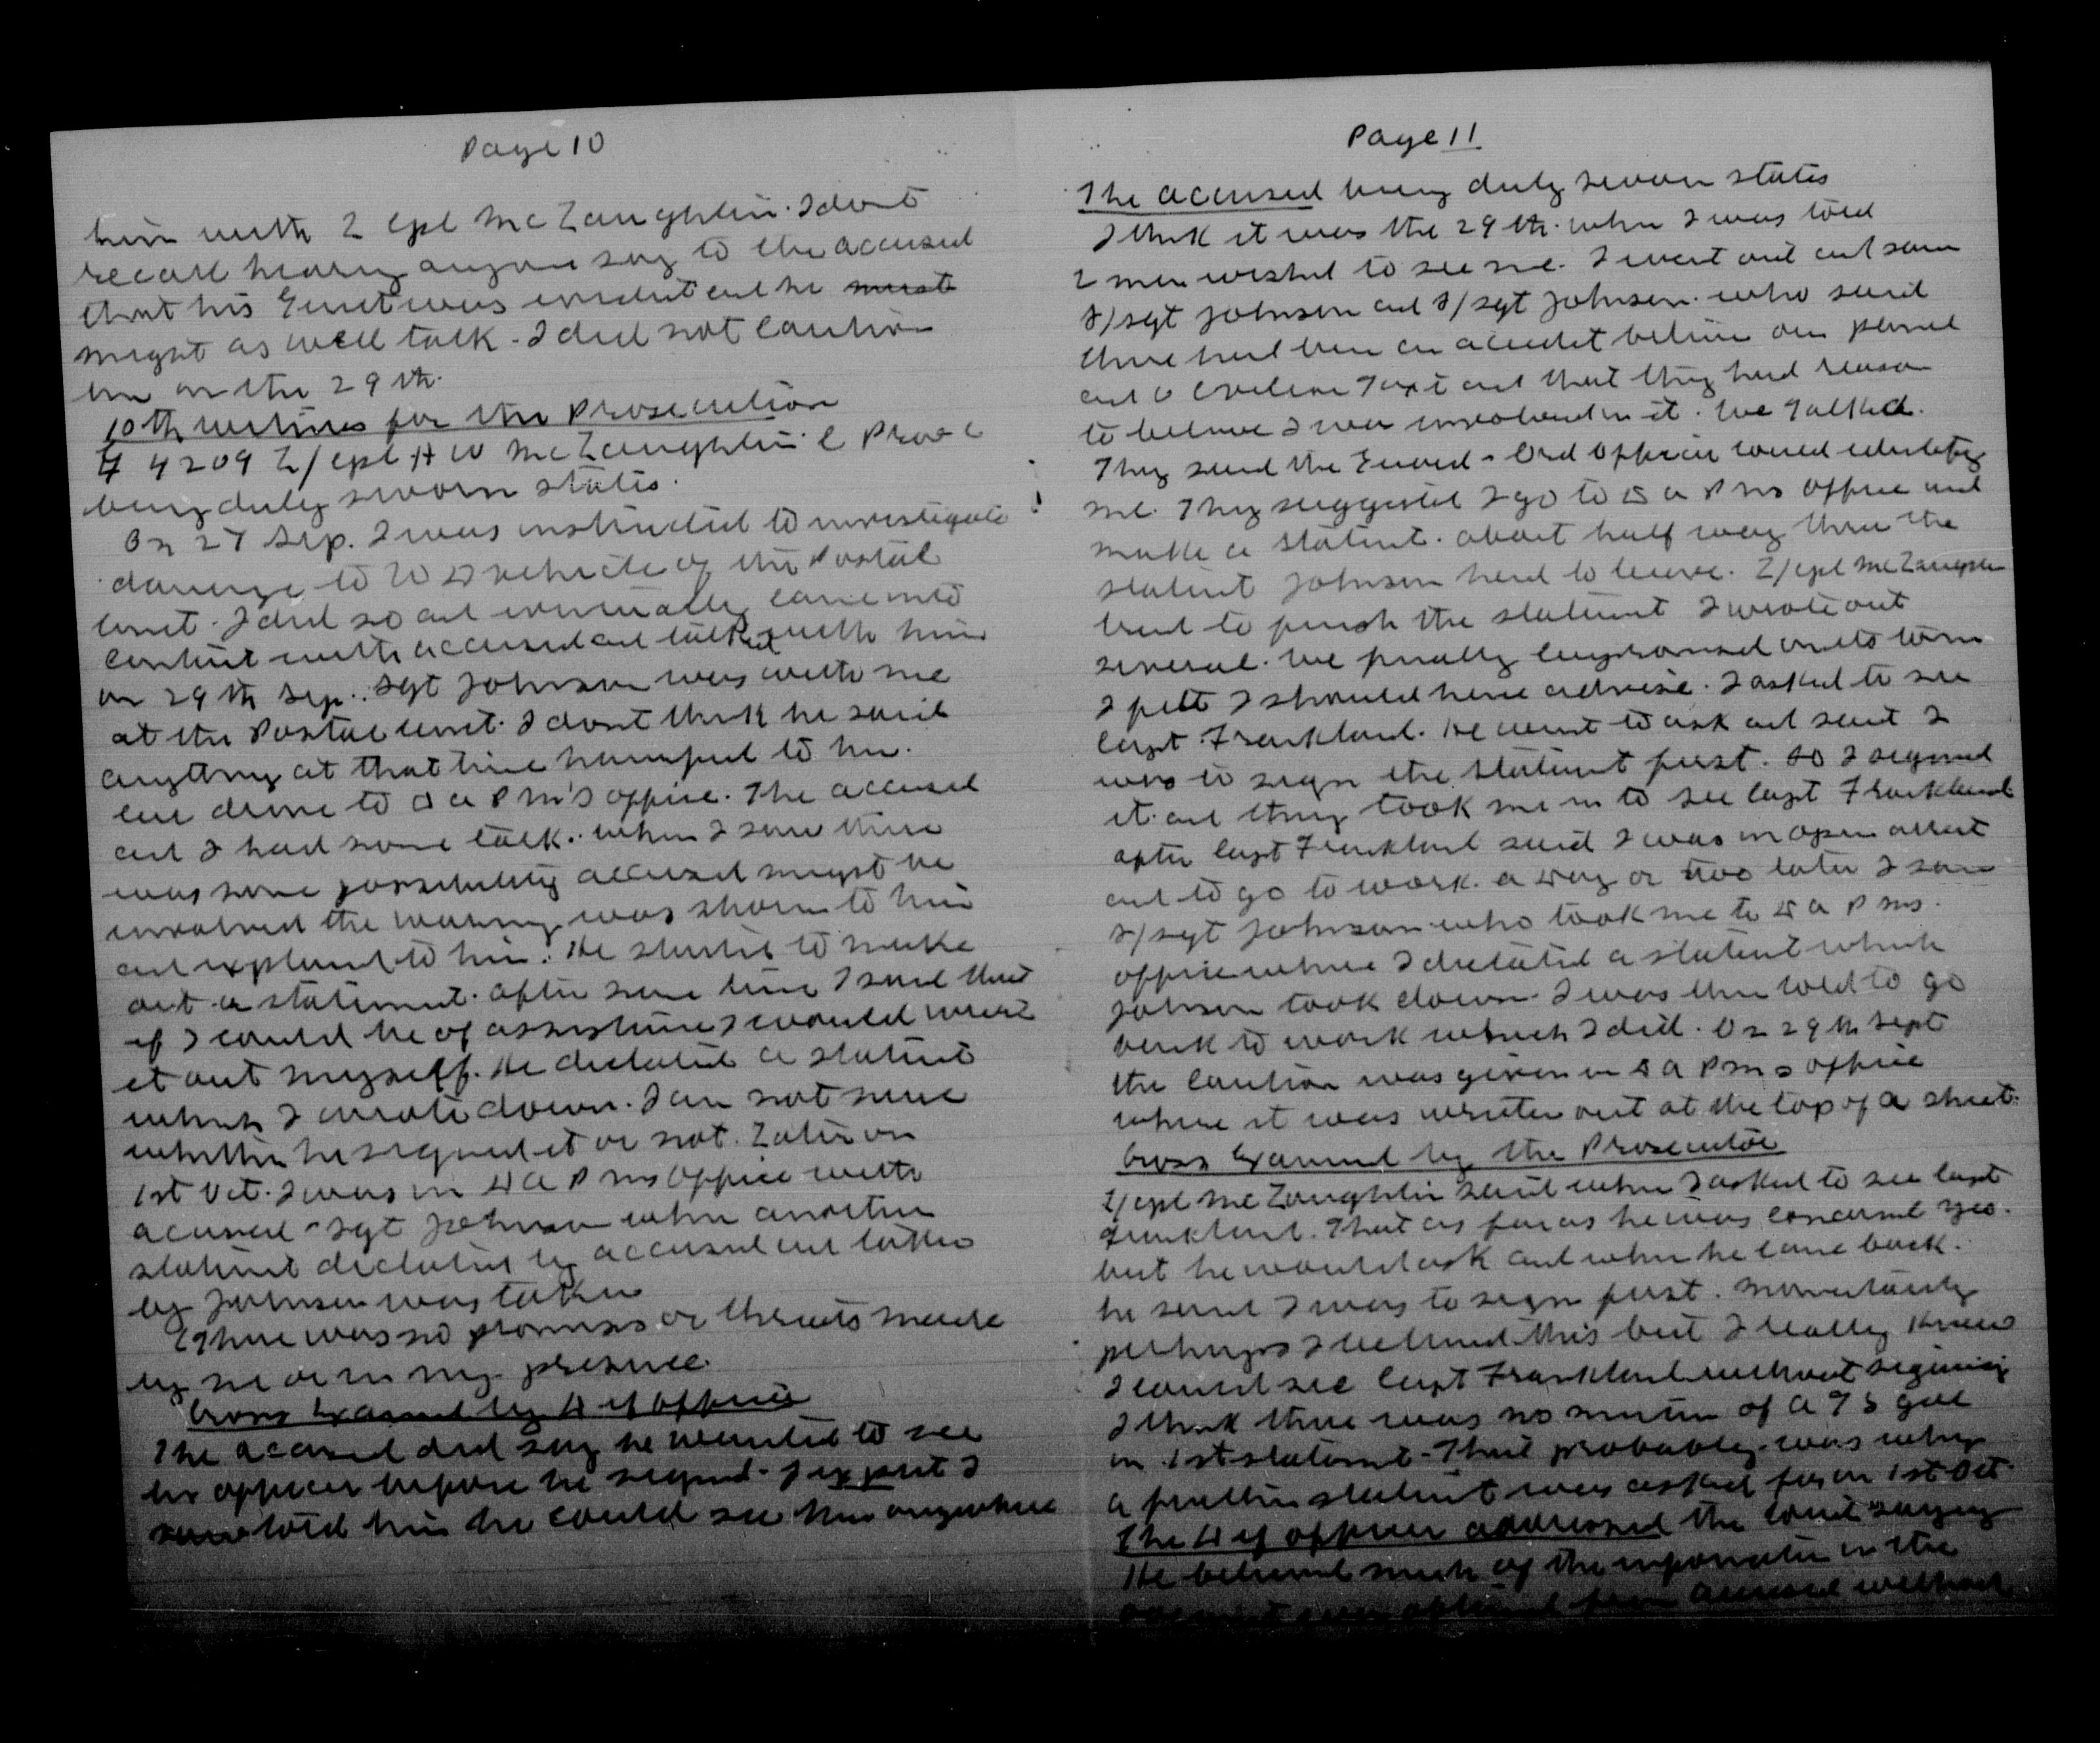 Page 10
him with L Cpl McLaughlin. I dont
recall hearing anyone say to the accused
that his guilt was evident and he must
might as well talk. I did not caution
him on the 29th.
10th witness for the Prosecution
4209 L/Cpl H W McLaughlin C Pro C
being duly sworn states.
On 27 Sep. I was instructed to investigate
damage to W D vehicle of the Postal
Unit. I did so and eventually came into
contact with accused and talked with him
on 29th Sep. Sgt Johnson was with me
at the Postal Unit. I dont think he said
anything at that time harmful to him.
We drove to D A P M's office. The accused
and I had some talk. When I saw there
was some possibility accused might be
involved the warning was shown to him
and explained to him. He started to make
out a statement. After some time I said that
if I could be of assistance I would write
it out myself. He dictated a statement
which I wrote down. I am not sure
whether he signed it or not. Later on
1st Oct. I was in D A P Ms Office with
accused & Sgt Johnson when another
statement dictated by accused and taken
by Johnson was taken
There was no promises or threats made
by me or in my presence.
Cross Examined by Def Officer
The accused did say he wanted to see
his officer before he signed. I expect I
told him he could see him anywhere
Page 11
The accused being duly sworn states
I think it was the 29th. when I was told
2 men wished to see me. I went out and saw
S/Sgt Johnson and S/Sgt Johnsen. who said
there had been an accident between our
and a civilian Taxi and that they had reason
to believe I was involved in it. We talked.
They said the Guard & Ord Officer could identify
me. They suggested I go to D A P Ms Office and
make a statement. About half way thru the
statement Johnson had to leave. L/Cpl McLaughlin
tried to finish the statement I wrote out
several. We finally compromised on its terms
I felt I should have advise. I asked to see
Capt. Frankland. He went to ask and said I
was to sign the statement first. So I signed
it and they took me in to see Capt Frankland
after Capt Frankland said I was in open arrest
and to go to work. A day or two later I saw
S/Sgt Johnson who took me to D A P Ms.
office where I dictated a statement which
Johnson took down. I was then told to go
back to work which I did. On 29th Sept
the caution was given in D A P Ms office
where it was written out at the top of a sheet.
Cross Examined by the Prosecutor
L/Cpl McLaughlin said when I asked to see Capt
Frankland. That as far as he was concerned yes.
but he would ask and when he came back.
he said I was to sign first. Momentarily
perhaps I believed this but I really knew
I could see Capt Frankland without signing
I think there was no mention of A T S girl
in 1st statement. That probably was why
a further statement was asked for on 1st Oct.
The Def officer addressed the court saying
He believed much of the information in the
obtained from accused without